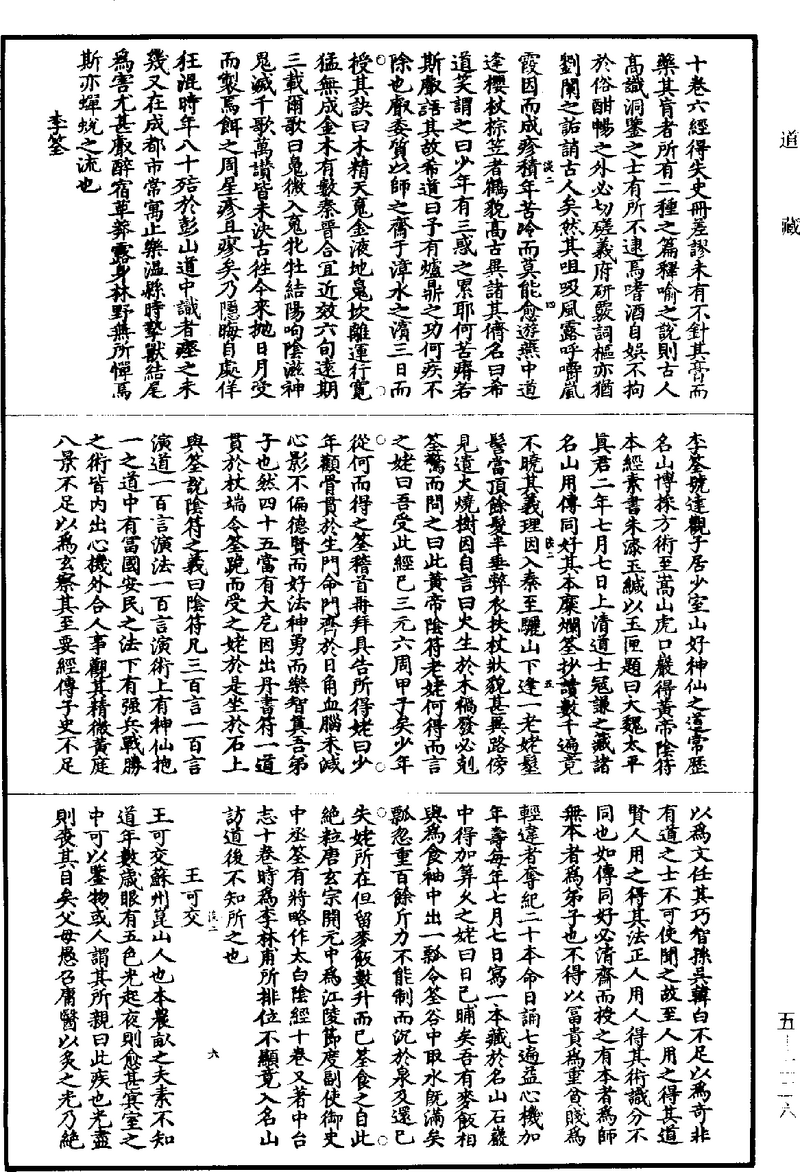 道藏
十卷六經得失史冊差謬未有不針其膏而
藥其肓者所有二種之篇釋喻之說則古人
高識洞鑒之士有所不逮焉嗜酒自娛不拘
於俗酣暢之外必切磋義府研覈詞樞亦猶
劉闌之詬誚古人矣然其咀吸風露呼嚼嵐
霞因而成疹積年苦冷而莫能愈遊燕中道
逢櫻杖棕笠者鶴貌高古異諸其儕名曰希
道笑謂之曰少年有三惑之累耶何苦瘠若
斯㕡語其故希道曰子有爐鼎之功何疾不
除也㕡委質以師之齋于漳水之濱三日而
授其訣曰木精天䰟金液地䰟坎離運行寬
猛無成金木有數秦晉合宜近效六旬遠期
三載爾歌曰䰟微入䰟牝牡結陽呴陰滋神
鬼滅千歌萬讚皆未決古往今來拋日月受
而製焉餌之周星疹且瘳矣乃隱晦自處佯
狂混時年八十殕於彭山道中識者瘞之未
幾又在成都市常寓止樂溫縣時摯獸結尾
為害尤甚㕡醉宿草莽露身林野無所憚焉
斯亦蟬蛻之流也
李筌
李筌號達觀子居少室山好神仙之道常歷
名山博採方術至嵩山虎口巖得黃帝陰符
本經素書朱漆玉緘以玉匣題曰大魏太平
真君二年七月七日上清道士寇謙之藏諸
名山用傳同好其本糜爛筌抄讀數千遍竟
不曉其義理因入秦至驪山下逢一老姥髽
髻當頂餘髮半垂弊衣扶杖狀貌甚異路傍
見遺火燒樹因自言曰火生於木禍發必剋
筌驚而問之曰此黃帝陰符老姥何得而言
之姥曰吾受此經已三元六周甲子矣少年
從何而得之筌稽首再拜具告所得姥曰少
年顴骨貫於生門命門齊於日角血腦未減
心影不偏德賢而好法神勇而樂智真吾弟
子也然四十五當有大厄因出丹書符一道
貫於杖端令筌跪而受之姥於是坐於石上
與筌說陰符之義曰陰符凡三百言一百言
演道一百言演法一百言演術上有神仙抱
一之道中有富國安民之法下有强兵戰勝
之術皆內出心機外合人事觀其精微黃庭
八景不足以為玄察其至要經傳子史不足
以為文任其巧智孫吳韓白不足以為奇非
有道之士不可使聞之故至人用之得其道
賢人用之得其法正人用人得其術識分不
同也如傳同好必清齋而授之有本者為師
無本者為弟子也不得以富貴為重貧賤為
輕違者奪紀二十本命日誦七遍益心機加
年壽每年七月七日寫一本藏於名山石巖
中得加算久之姥曰日已晡矣吾有麥飯相
與為食袖中出一瓢令筌谷中取水既滿矣
瓢忽重百餘斤力不能制而沉於泉及還已
失姥所在但留麥飯數升而已筌食之自此
絕粒唐玄宗開元中為江陵節度副使御史
中丞筌有將略作太白陰經十卷又著中台
志十卷時為李林甫所排位不顯竟入名山
訪道後不知所之也
王可交
王可交蘇州崑山人也本農畝之夫素不知
道年數歲眼有五色光起夜則愈甚冥室之
中可以鑒物或人謂其所親曰此疾也光盡
則喪其目矣父母愚召庸醫以炙之光乃絕